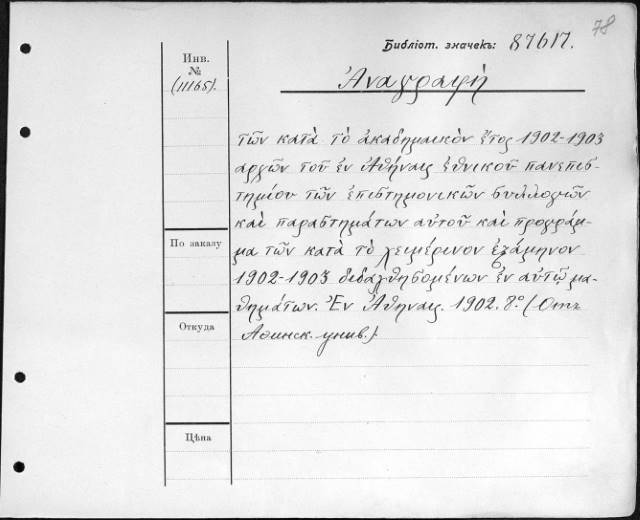 78
Библіот. значекъ: 87617.
Инв.
№
(11165).
Ἀναγραφὴ
τῶν κατὰ τὸ ἀκαδημαικὸν ἔτος 1902-1903
ἀρχῶν τοῦ ἐν Ἀθήναις ἐθνικοῦ πανεπισ-
τημίου τῶν ἐπιστημονικῶν συλλογῶν
καὶ παραστημάτων αὐτοῦ καὶ προγράμ-
μα τῶν κατὰ τὸ χειμέρινον ἑξάμηνον
1902-1903 διδαχθησομένων ἐν αὐτῷ μα-
θημάτων. Ἐν Ἀθηναις. 1902. 8º. (Отъ
Аѳинск. унив.).
По заказу
Откуда
Цѣна